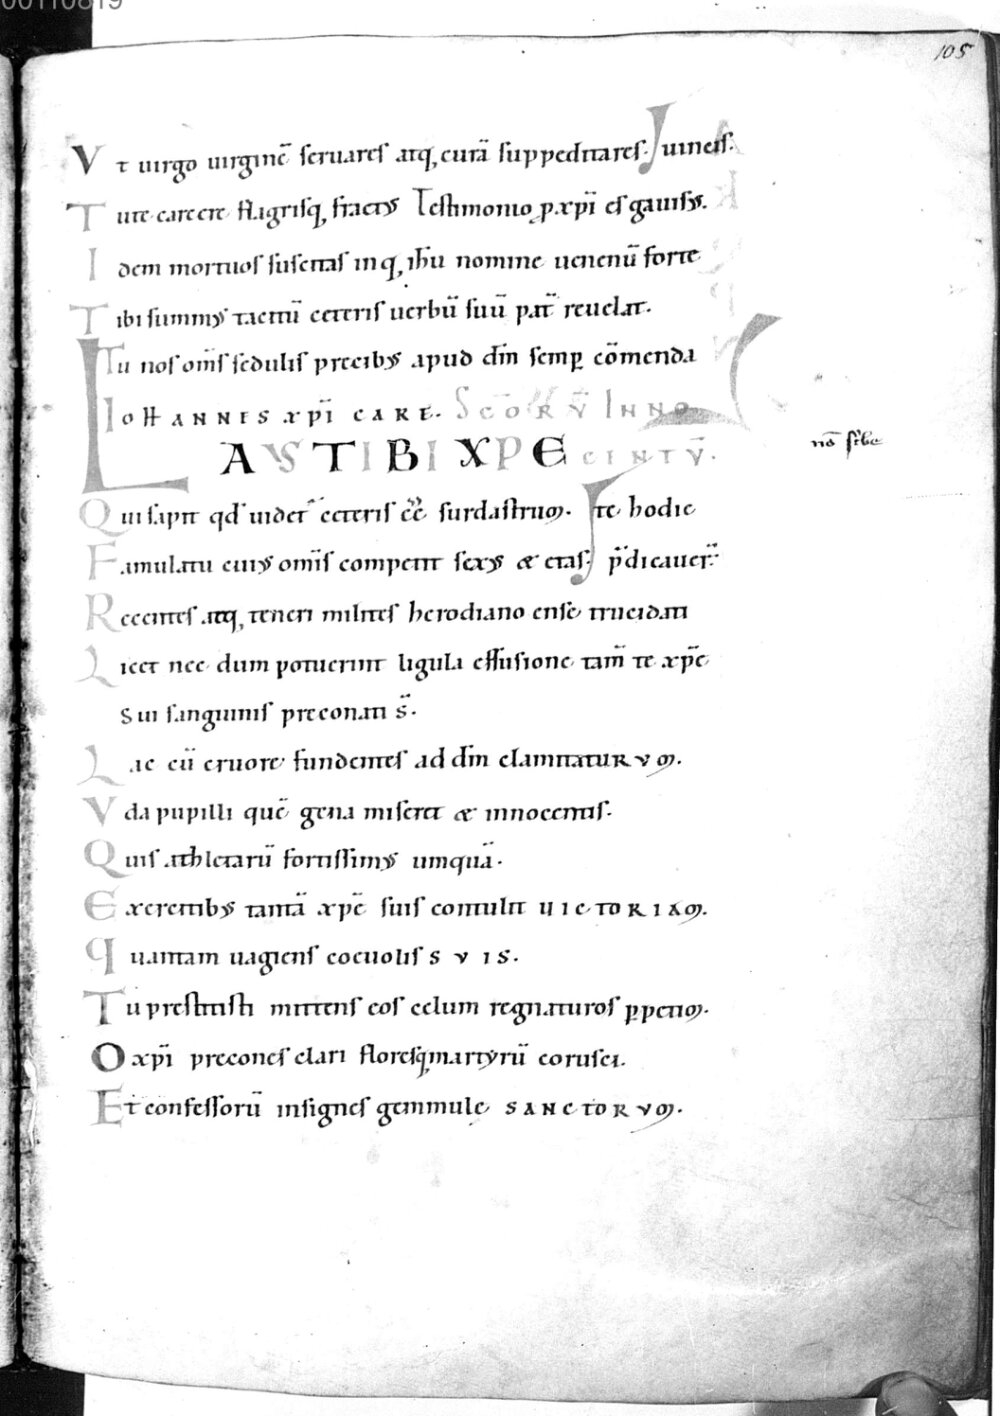 00110819
105
Vt uirgo uirginē seruares atq; curā suppeditares. Iuincis.
Tute carcere flagrisq; fractꝰ Testimonio ꝓ xp̄i es gauisꝰ.
Idem mortuos suscitas inq; ih̄u nomine uenenū forte
Tibi summꝰ tacitū ceteris uerbū suū pat̄ reuelat.
Tu nos om̄s sedulis precibꝰ apud dn̄m semꝑ cōmenda
IOHANNES xp̄i CARE. SCORV̄ INNO
LAVS TIBI XPE CINTV̄.
Qui sapit qd̄ uidet̄ ceteris ēē surdastrum. Ite hodie
Famulatu cuiꝰ om̄is competit sexꝰ & etas. p̄dicauer̄
Recentes atq; teneri milites herodiano ense trucidati
Licet nec dum potuerint ligula effusione tam̄ te xp̄e
Sui sanguinis preconati s̄.
Lac cū cruore fundentes ad dn̄m clamitaturVM.
Vda pupilli quē gena miseret & innocentis.
Quis athletarū fortissimꝰ umquā.
Exercitibꝰ tantā xp̄e suis contulit uictoRIAM.
Quantam uagiens cocuolis SVIS.
Tu prestitisti mittens eos celum regnaturos ꝑpetim.
O xp̄i precones clari floresq; martyrū corusci.
Et confessorū insignes gemmule SANCTORVM.